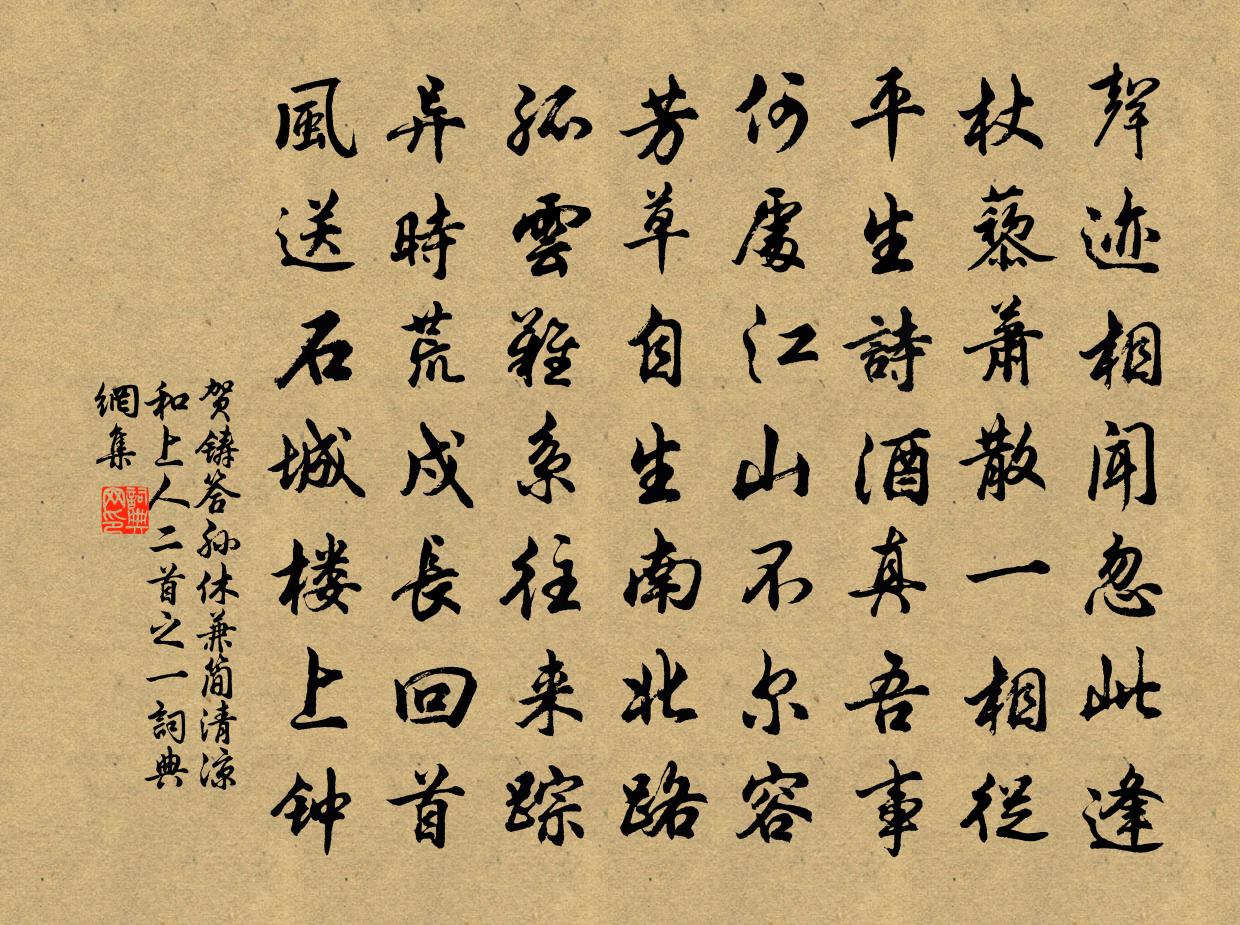 聲迹相聞忽此逢
杖藜蕭散一相從
平生詩酒真吾事
何處江山不尔容
芳草自生南北路
孤雲難系往来踪
异時荒戍長回首
風送石城楼上钟
贺鑄答孙休兼简清凉
和上人二首之一詞典
網集
詞典网印